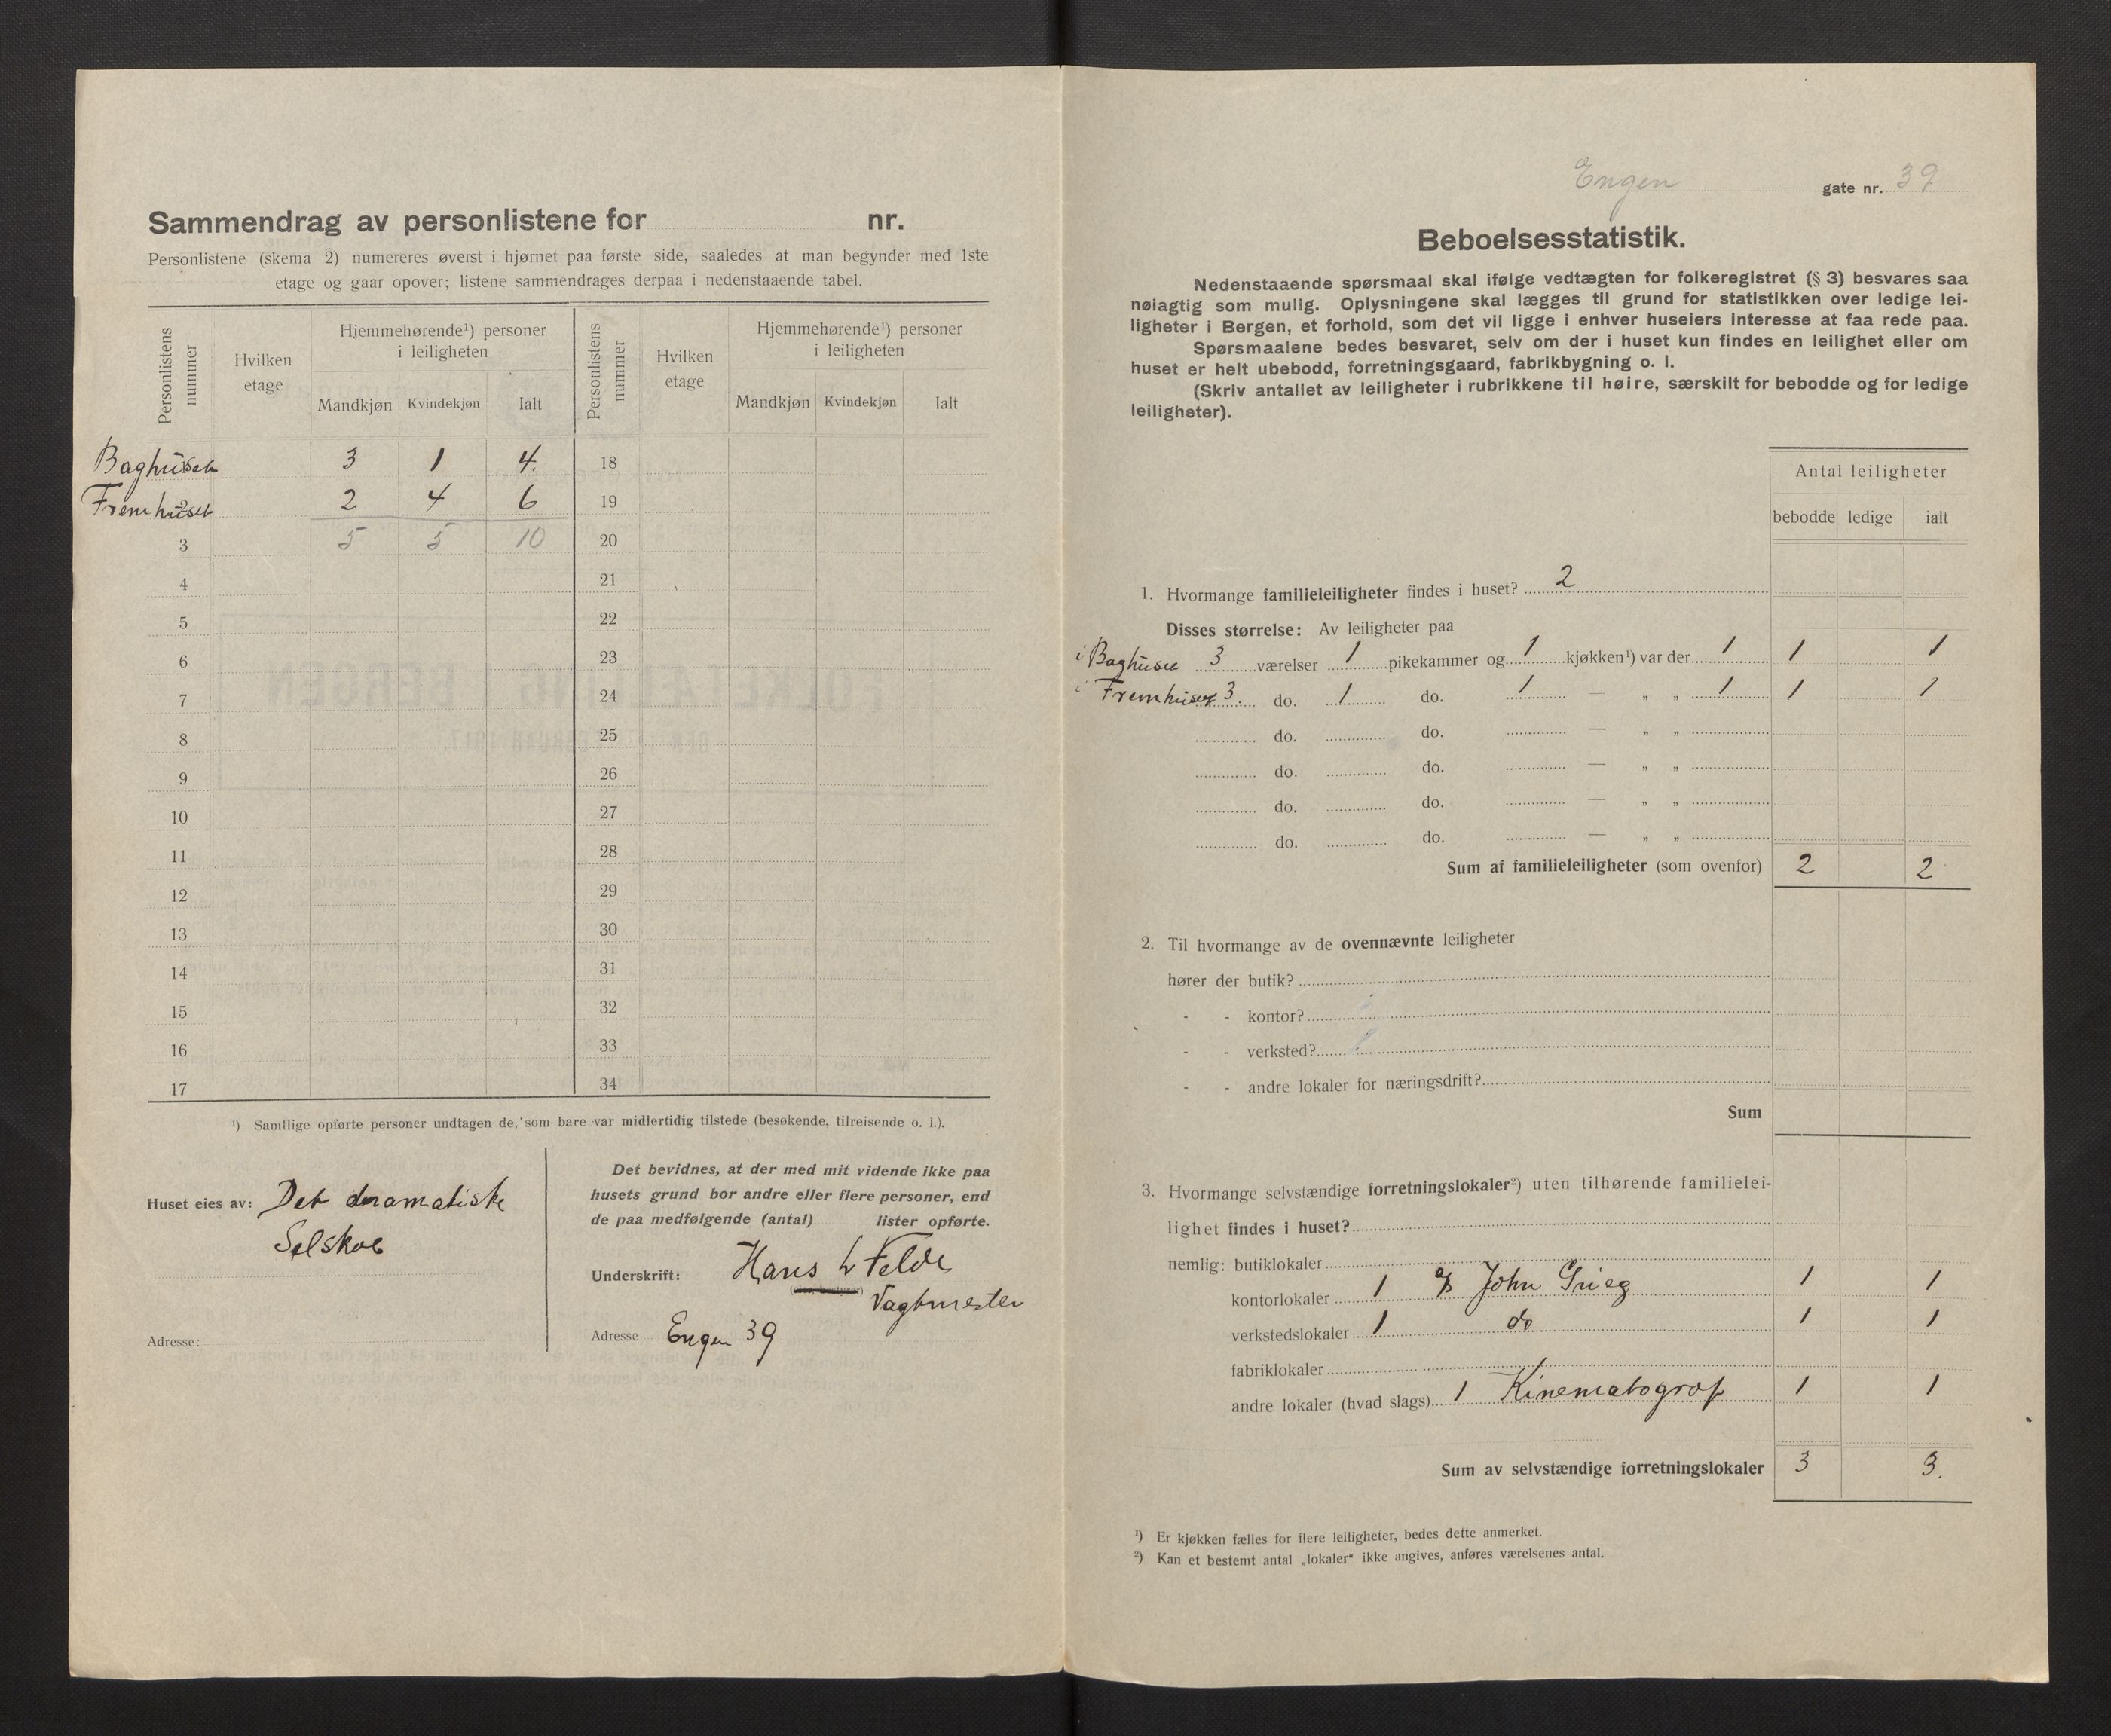 Sammendrag av personlistene for nr.
Personlistene (skema 2) numereres øverst i hjørnet paa første side, saaledes at man begynder med 1ste
etage og gaar opover; listene sammendrages derpaa i nedenstaaende tabel.
Personlistens nummer Hvilken etage Hjemmehørende¹) personer i leiligheten Personlistens nummer Hvilken etage Hjemmehørende¹) personer i leiligheten
Mandkjøn Kvindekjøn Ialt Mandkjøn Kvindekjøn Ialt
Baghuset 3 1 4. 18
Fremhuset 2 4 6 19
3 5 5 10 20
4 21
5 22
6 23
7 24
8 25
9 26
10 27
11 28
12 29
13 30
14 31
15 32
16 33
17 34
¹) Samtlige opførte personer undtagen de, som bare var midlertidig tilstede (besøkende, tilreisende o. l.).
Huset eies av: Det dramatiske
Selskab
Adresse:
Det bevidnes, at der med mit vidende ikke paa
husets grund bor andre eller flere personer, end
de paa medfølgende (antal) lister opførte.
Underskrift: Hans L Felde
Vagtmester
Adresse Engen 39
Engen gate nr. 39
Beboelsesstatistik.
Nedenstaaende spørsmaal skal ifølge vedtægten for folkeregistret (§ 3) besvares saa
nøiagtig som mulig. Oplysningene skal lægges til grund for statistikken over ledige lei-
ligheter i Bergen, et forhold, som det vil ligge i enhver huseiers interesse at faa rede paa.
Spørsmaalene bedes besvaret, selv om der i huset kun findes en leilighet eller om
huset er helt ubebodd, forretningsgaard, fabrikbygning o. l.
(Skriv antallet av leiligheter i rubrikkene til høire, særskilt for bebodde og for ledige
leiligheter).
Antal leiligheter
bebodde ledige ialt
1. Hvormange familieleiligheter findes i huset? 2
Disses størrelse: Av leiligheter paa
i Baghuset 3 værelser 1 pikekammer og 1 kjøkken¹) var der 1 1 1
i Fremhuset 3. do. 1 do. 1 — „ „ 1 1 1
do. do. — „ „
do. do. — „ „
do. do. — „ „
do. do. — „ „
Sum af familieleiligheter (som ovenfor) 2 2
2. Til hvormange av de ovennævnte leiligheter
hører der butik?
- - kontor?
- - verksted?
- - andre lokaler for næringsdrift?
Sum
3. Hvormange selvstændige forretningslokaler²) uten tilhørende familielei-
lighet findes i huset?
nemlig: butiklokaler
kontorlokaler 1 John Grieg 1 1
verkstedslokaler 1 do 1 1
fabriklokaler
andre lokaler (hvad slags) 1 Kinematograf 1 1
Sum av selvstændige forretningslokaler 3 3.
¹) Er kjøkken fælles for flere leiligheter, bedes dette anmerket.
²) Kan et bestemt antal „lokaler“ ikke angives, anføres værelsenes antal.